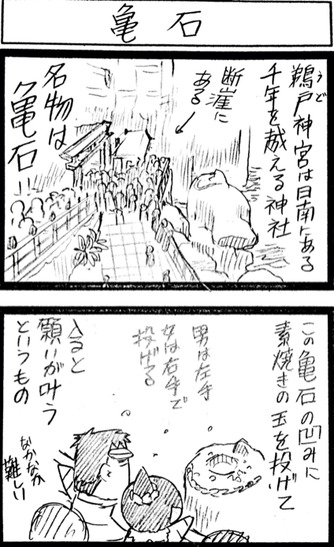 亀石
鵜戸神宮は日南にある
うど
千年を越える神社
断崖に
ある
名物は
亀石!!
この亀石の凹みに
素焼きの玉を投げて
男は左手
女は右手で
投げる
入ると
願いが叶う
というもの
なかなか
難しい